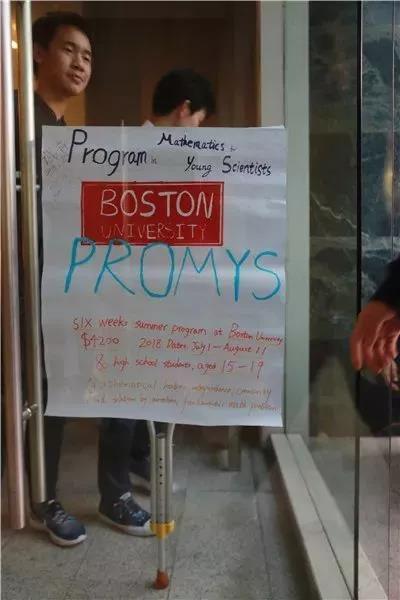 Program in Mathematics for
Young Scientists
BOSTON
UNIVERSITY
PROMYS
six weeks summer program at Boston University
$4200 2018 Dates: July 1 - August 11
high school students, aged 15-19
mathematical